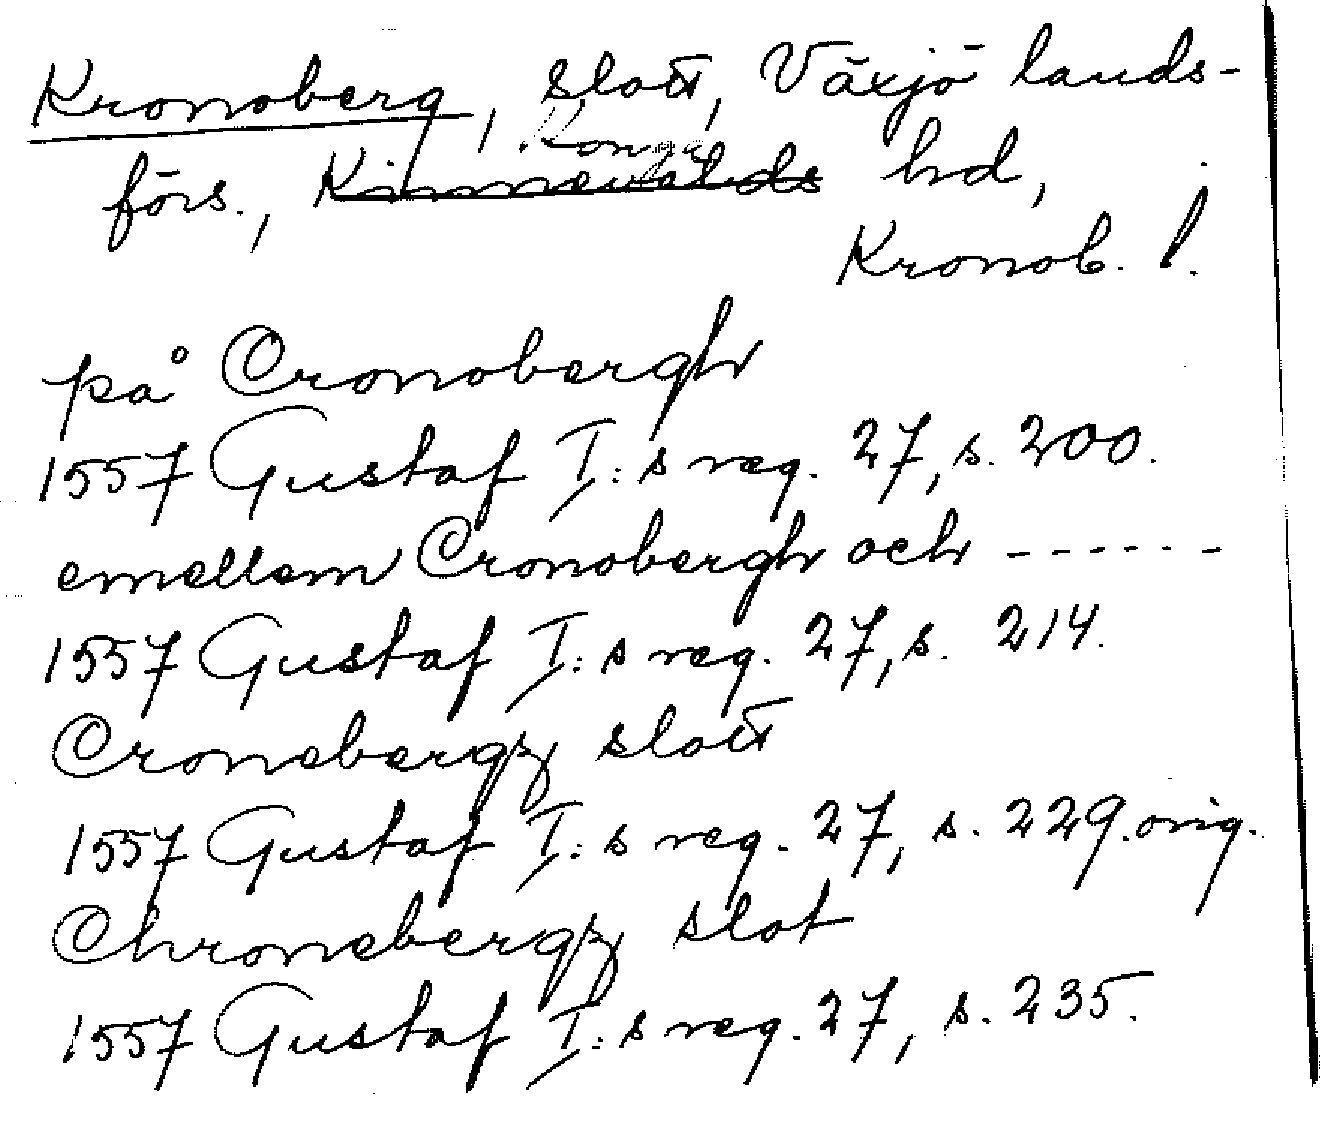 Kronoberg, slott, Växjö lands-
förs., Konga Kinnevalds hd,
Kronob. l.
på Cronobergh
1557 Gustaf I:s reg. 27, s. 200.
emellem Cronobergh och ------
1557 Gustaf I:s reg. 27, s. 214.
Cronebergz slott
1557 Gustaf I:s reg. 27, s. 229. orig.
Chronebergz slot
1557 Gustaf I:s reg. 27, s. 235.